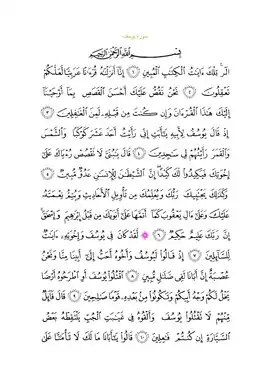 سورة يوسف
بِسْمِ ٱللَّهِ ٱلرَّحْمَٰنِ ٱلرَّحِيمِ
الٓر ۚ تِلْكَ ءَايَٰتُ ٱلْكِتَٰبِ ٱلْمُبِينِ ١ إِنَّآ أَنزَلْنَٰهُ قُرْءَٰنًا عَرَبِيًّا لَّعَلَّكُمْ
تَعْقِلُونَ ٢ نَحْنُ نَقُصُّ عَلَيْكَ أَحْسَنَ ٱلْقَصَصِ بِمَآ أَوْحَيْنَآ
إِلَيْكَ هَٰذَا ٱلْقُرْءَانَ وَإِن كُنتَ مِن قَبْلِهِۦ لَمِنَ ٱلْغَٰفِلِينَ ٣
إِذْ قَالَ يُوسُفُ لِأَبِيهِ يَٰٓأَبَتِ إِنِّى رَأَيْتُ أَحَدَ عَشَرَ كَوْكَبًا وَٱلشَّمْسَ
وَٱلْقَمَرَ رَأَيْتُهُمْ لِى سَٰجِدِينَ ٤ قَالَ يَٰبُنَىَّ لَا تَقْصُصْ رُءْيَاكَ عَلَىٰٓ
إِخْوَتِكَ فَيَكِيدُوا۟ لَكَ كَيْدًا ۖ إِنَّ ٱلشَّيْطَٰنَ لِلْإِنسَٰنِ عَدُوٌّ مُّبِينٌ ٥
وَكَذَٰلِكَ يَجْتَبِيكَ رَبُّكَ وَيُعَلِّمُكَ مِن تَأْوِيلِ ٱلْأَحَادِيثِ وَيُتِمُّ نِعْمَتَهُۥ
عَلَيْكَ وَعَلَىٰٓ ءَالِ يَعْقُوبَ كَمَآ أَتَمَّهَا عَلَىٰٓ أَبَوَيْكَ مِن قَبْلُ إِبْرَٰهِيمَ وَإِسْحَٰقَ ۚ
إِنَّ رَبَّكَ عَلِيمٌ حَكِيمٌ ٦ لَّقَدْ كَانَ فِى يُوسُفَ وَإِخْوَتِهِۦٓ ءَايَٰتٌ
لِّلسَّآئِلِينَ ٧ إِذْ قَالُوا۟ لَيُوسُفُ وَأَخُوهُ أَحَبُّ إِلَىٰٓ أَبِينَا مِنَّا وَنَحْنُ
عُصْبَةٌ إِنَّ أَبَانَا لَفِى ضَلَٰلٍ مُّبِينٍ ٨ ٱقْتُلُوا۟ يُوسُفَ أَوِ ٱطْرَحُوهُ أَرْضًا
يَخْلُ لَكُمْ وَجْهُ أَبِيكُمْ وَتَكُونُوا۟ مِنۢ بَعْدِهِۦ قَوْمًا صَٰلِحِينَ ٩ قَالَ قَآئِلٌ
مِّنْهُمْ لَا تَقْتُلُوا۟ يُوسُفَ وَأَلْقُوهُ فِى غَيَٰبَتِ ٱلْجُبِّ يَلْتَقِطْهُ بَعْضُ
ٱلسَّيَّارَةِ إِن كُنتُمْ فَٰعِلِينَ ١٠ قَالُوا۟ يَٰٓأَبَانَا مَا لَكَ لَا تَأْمَ۫نَّا عَلَىٰ